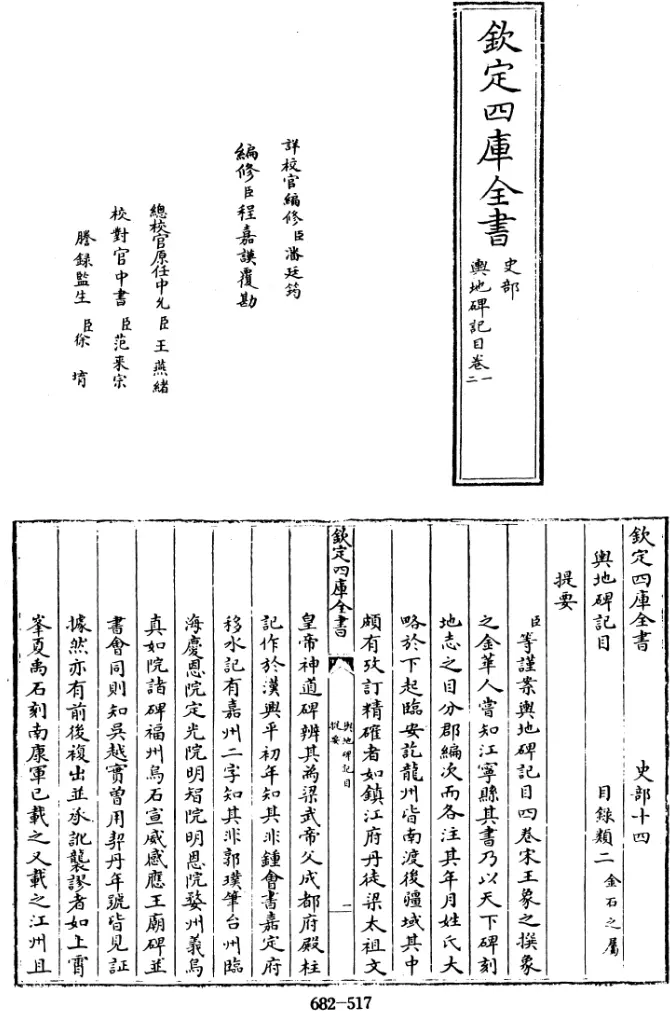 欽定四庫全書
史部
輿地碑記目卷一
二
詳校官編修臣潘廷筠
編修臣程嘉謨覆勘
總校官原任中允臣王燕緒
校對官中書臣范來宗
謄錄監生臣徐堉
欽定四庫全書 史部十四
輿地碑記目 目錄類二 金石之屬
提要
臣等謹案輿地碑記目四卷宋王象之撰象
之金華人嘗知江寧縣其書乃以天下碑刻
地志之目分郡編次而各注其年月姓氏大
略於下起臨安訖龍州皆南渡後疆域其中
頗有攷訂精確者如鎮江府丹徒梁太祖文
欽定四庫全書
輿地碑記目
提要
一
皇帝神道碑辨其為梁武帝父成都府殿柱
記作於漢興平初年知其非鍾會書嘉定府
移水記有嘉州二字知其非郭璞筆台州臨
海慶恩院定光院明智院明恩院婺州義烏
真如院諸碑福州烏石宣威感應王廟碑並
書會同則知吳越實曾用契丹年號皆見証
據然亦有前後複出並承訛襲謬者如上霄
峯夏禹石刻南康軍已載之又載之江州且
682-517